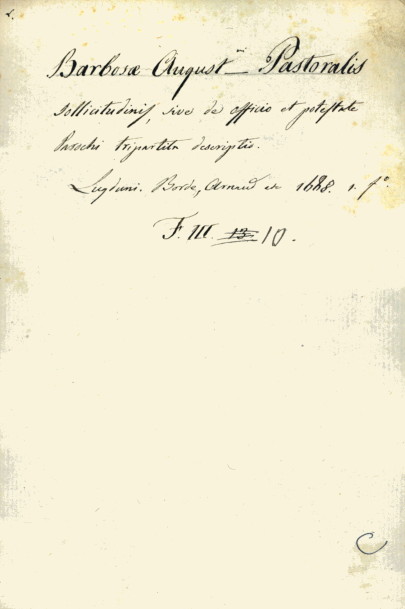 Barbosæ August — Pastoralis
sollicitudinis, sive de officio et potestate
Parochi tripartita descriptio.
Lugduni. Borde, Arnaud et 1688. 1. fº.
F. III. 13 10.
C